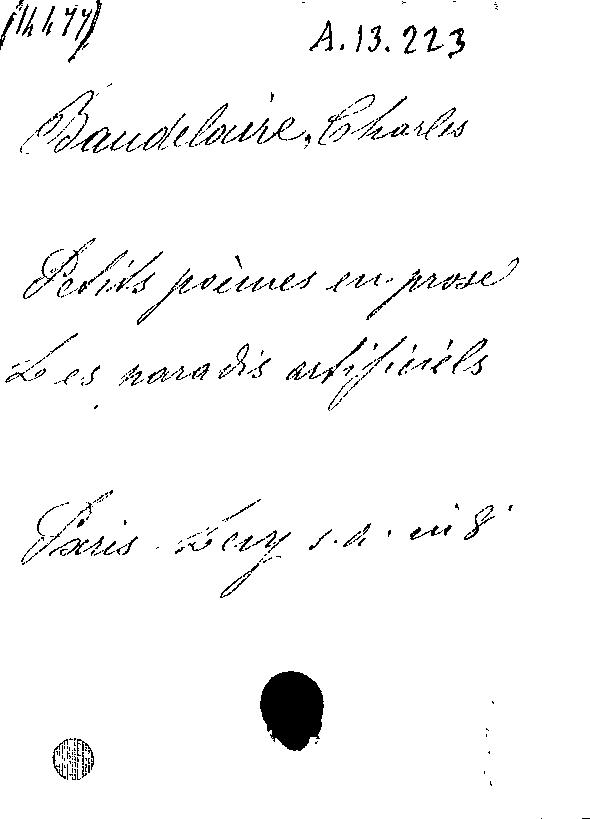 (14477)
A.13.223
Baudelaire, Charles
Petits poèmes en prose
Les paradis artificiels
Paris. Levy s.a. in 8°